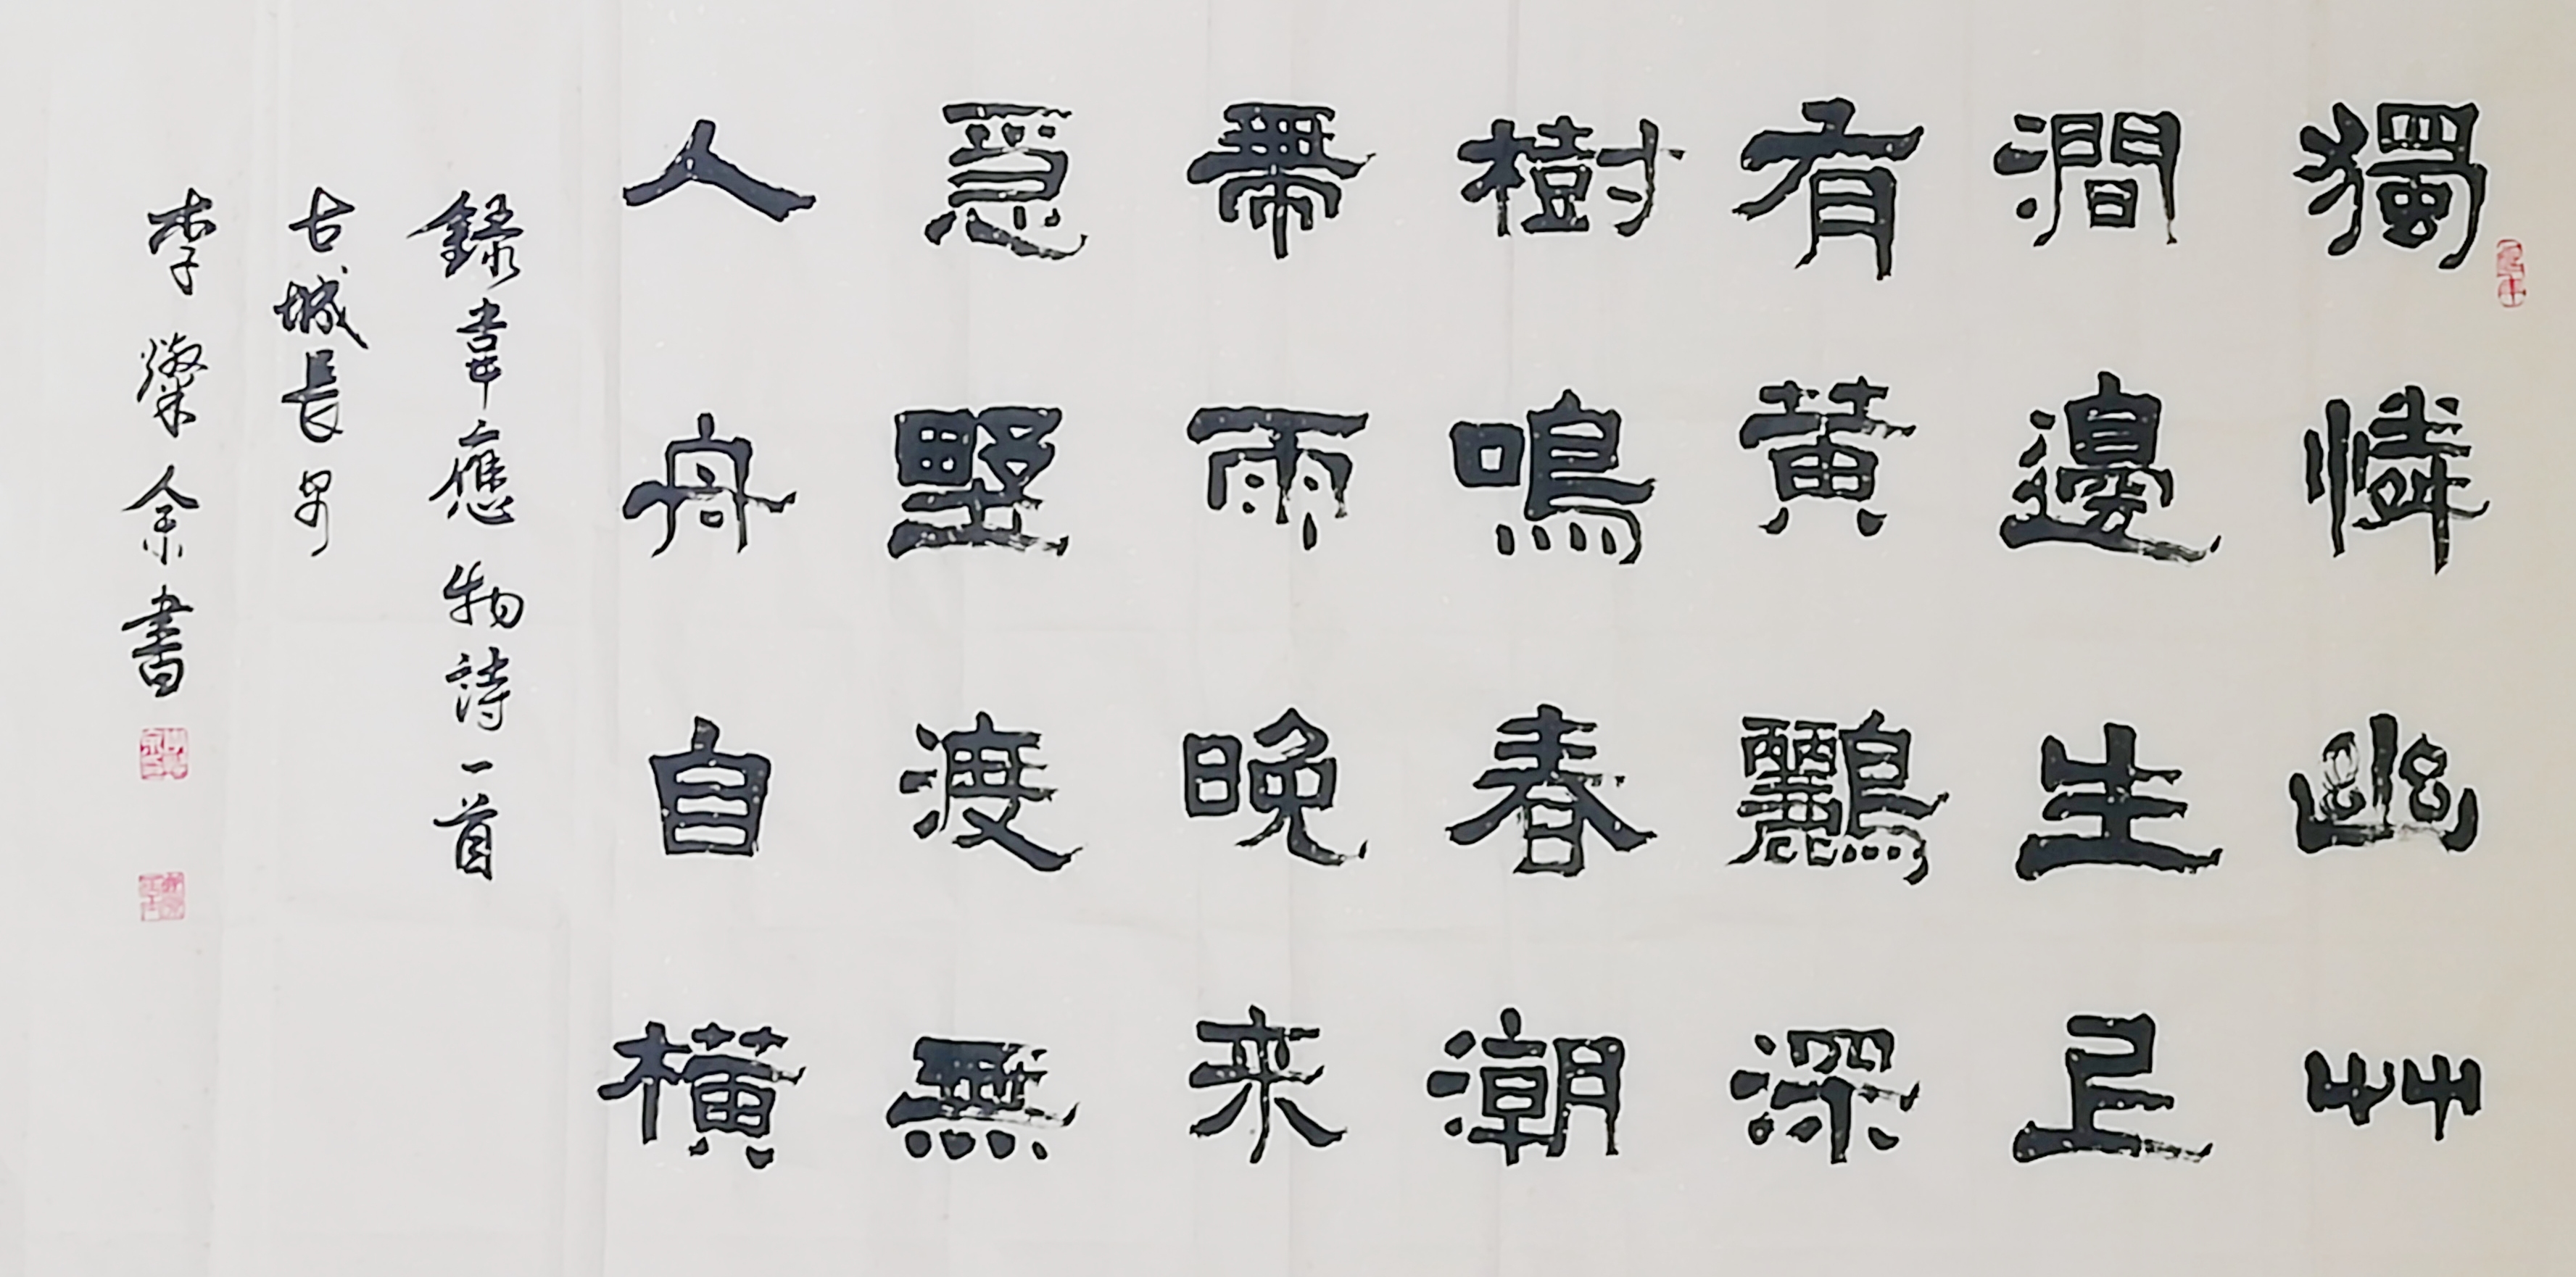 獨憐幽艸
澗邊生上
有黃鸝深
樹鳴春潮
帶雨晚来
急野渡無
人舟自橫
錄韋應物詩一首
古城長安
李燦余書